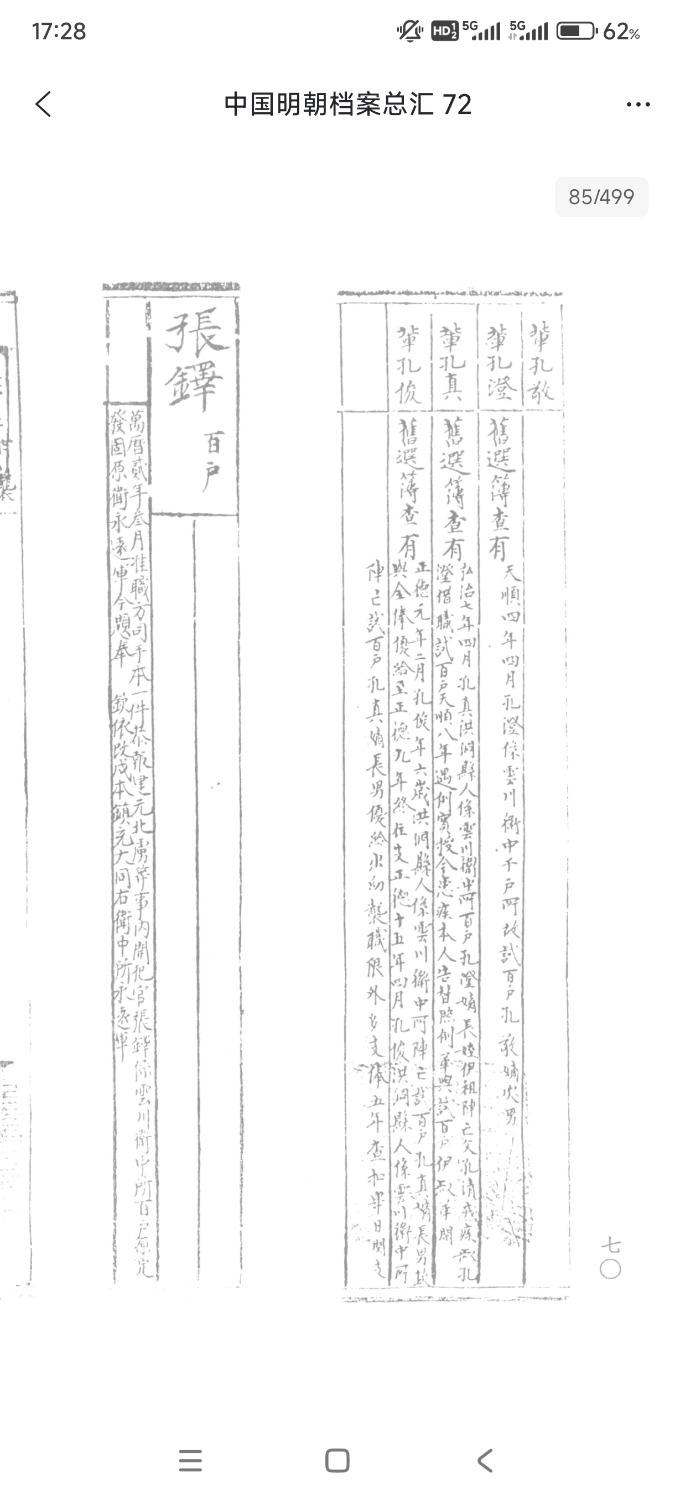 17:28
HD 5G 5G 62%
中国明朝档案总汇 72
85/499
輩孔敬
輩孔澄 舊選簿查有
天順四年四月孔澄係雲川衛中千戶所故試百戶孔敬嫡次男
輩孔真 舊選簿查有
弘治七年四月孔真洪洞縣人係雲川衛中所百戶孔澄嫡長姪伊祖陣亡父孔清殘疾叔孔
澄借職試百戶天順八年遇例實授今患疾本人告替照例革與試百戶伊叔革閑
輩孔俊 舊選簿查有
正德元年二月孔俊年六歲洪洞縣人係雲川衛中所陣亡試百戶孔真嫡長男欽
與全俸優給至正德九年終住支正德十五年四月孔俊洪洞縣人係雲川衛中所
陣亡試百戶孔真嫡長男優給出幼襲職限外多支俸五年查扣畢日關支
七〇
張鐸 百戶
萬曆貳年叁月准職方司手本一件恭報建元北虜等事內開犯官張鐸係雲川衛中所百戶原定
發固原衛永遠軍今題奉 欽依改戍本鎮充大同右衛中所永遠軍